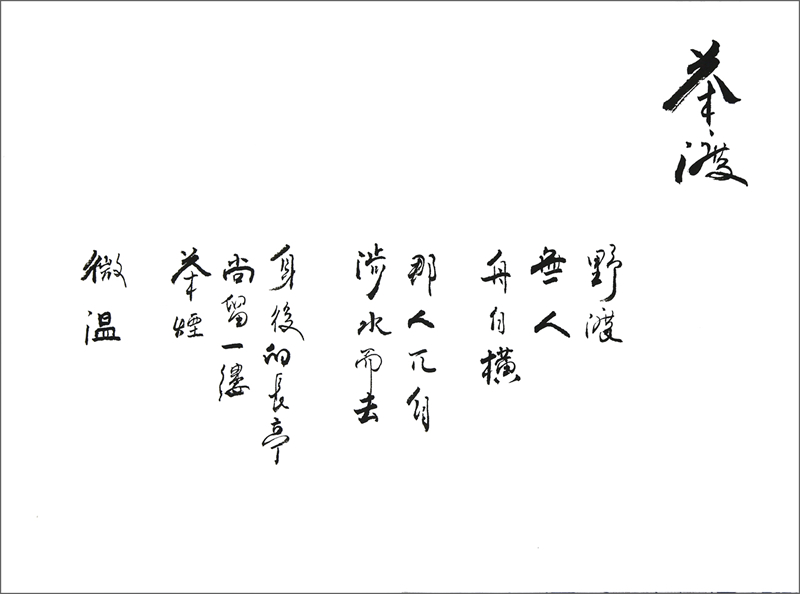 茶渡
野渡
無人
舟自橫
那人兀自
涉水而去
身後的長亭
尚留一縷
茶煙
微溫